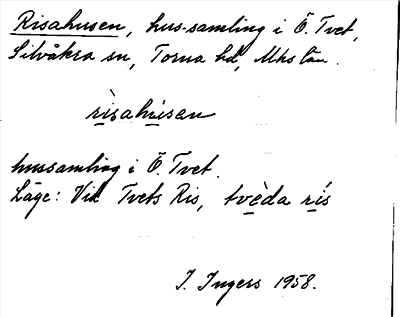 Risahusen, hus-samling i Ö. Tvet,
Silvåkra sn, Torna hd, Mhs län.
rìsahùsen
hussamling i Ö. Tvet.
Läge: Vid Tvets Ris, tvèda rís
I. Ingers 1958.